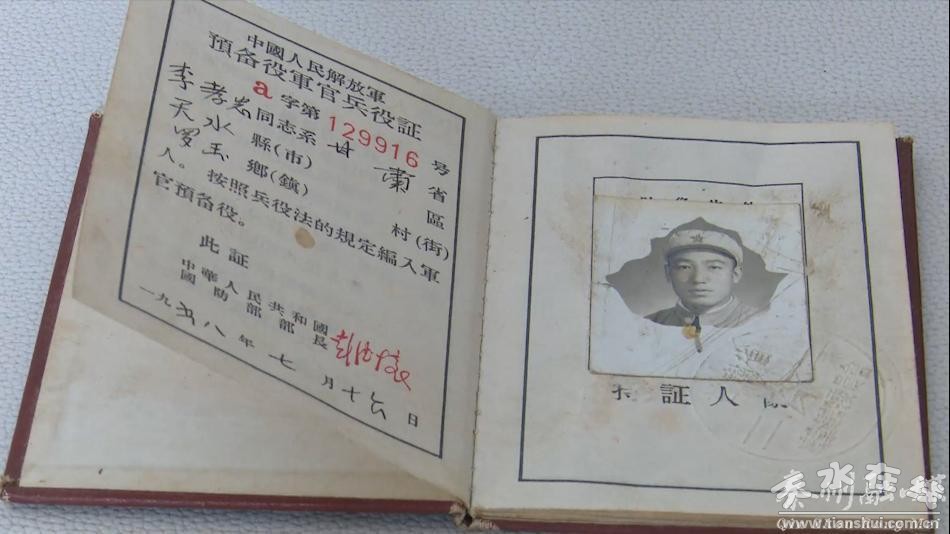 中國人民解放軍
預备役軍官兵役証
a字第129916号
李孝忠同志系甘肅省
天水縣(市)區
罗玉鄉(鎮)村(街)
人。按照兵役法的規定編入軍
官預备役。
此証
中華人民共和國
國防部部長
彭德怀
一九五八年七月十六日
証人
www.tianshui.com.cn